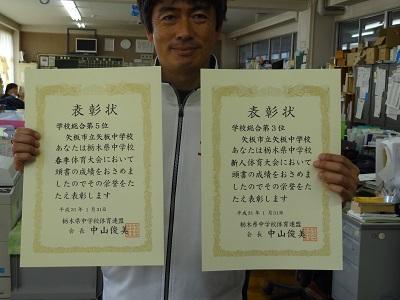 表彰状
学校総合第5位
矢板市立矢板中学校
あなたは栃木県中学校
春季体育大会において
頭書の成績をおさめま
したのでその栄誉をた
たえ表彰します
1月31日
栃木県中学校体育連盟
会長 中山俊美
表彰状
学校総合第3位
矢板市立矢板中学校
あなたは栃木県中学校
新人体育大会において
頭書の成績をおさめま
したのでその栄誉をた
たえ表彰します
1月31日
栃木県中学校体育連盟
会長 中山俊美